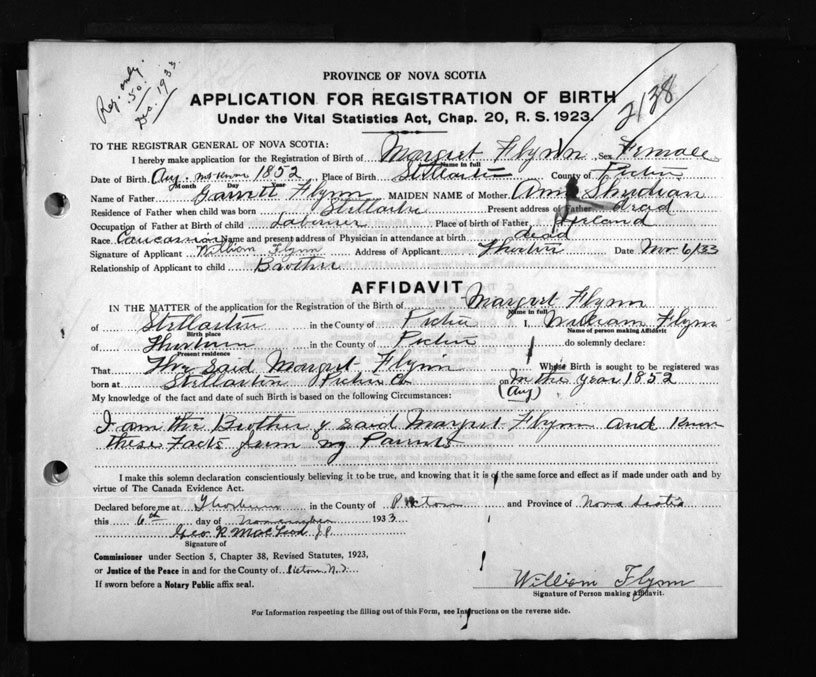 Reg. only.
.50.
Dec. 1933
2138
PROVINCE OF NOVA SCOTIA
APPLICATION FOR REGISTRATION OF BIRTH
Under the Vital Statistics Act, Chap. 20, R. S. 1923.
TO THE REGISTRAR GENERAL OF NOVA SCOTIA:
I hereby make application for the Registration of Birth of Margret Flynn Sex Female
Name in full
Date of Birth Aug. 1852 Place of Birth Stellarton County of Pictou
Month Day Year
Name of Father Garrett Flynn MAIDEN NAME of Mother Ann
Residence of Father when child was born Stellarton Present address of Father dead
Occupation of Father at Birth of child Laborer Place of birth of Father Ireland
Race. Caucasian Name and present address of Physician in attendance at birth dead
Signature of Applicant William Flynn Address of Applicant Thorburn Date Nov 6/33
Relationship of Applicant to child Brother
AFFIDAVIT
IN THE MATTER of the application for the Registration of the Birth of Margret Flynn
Name in full
of Stellarton in the County of Pictou I, William Flynn
Birth place Name of person making Affidavit
of Thorburn in the County of Pictou do solemnly declare:
Present residence
That The said Margret Flynn Whose Birth is sought to be registered was
born at Stellarton Pictou Co on In the year 1852
(Aug)
My knowledge of the fact and date of such Birth is based on the following Circumstances:
I am the Brother of said Margret Flynn and know
these Facts from my Parents
I make this solemn declaration conscientiously believing it to be true, and knowing that it is of the same force and effect as if made under oath and by
virtue of The Canada Evidence Act.
Declared before me at Thorburn in the County of Pictou and Province of Nova Scotia
this 6th day of November 1933
Geo R MacLeod J.P.
Signature of
Commissioner under Section 5, Chapter 38, Revised Statutes, 1923,
or Justice of the Peace in and for the County of Pictou N.S.
If sworn before a Notary Public affix seal.
William Flynn
Signature of Person making Affidavit.
For Information respecting the filling out of this Form, see Instructions on the reverse side.